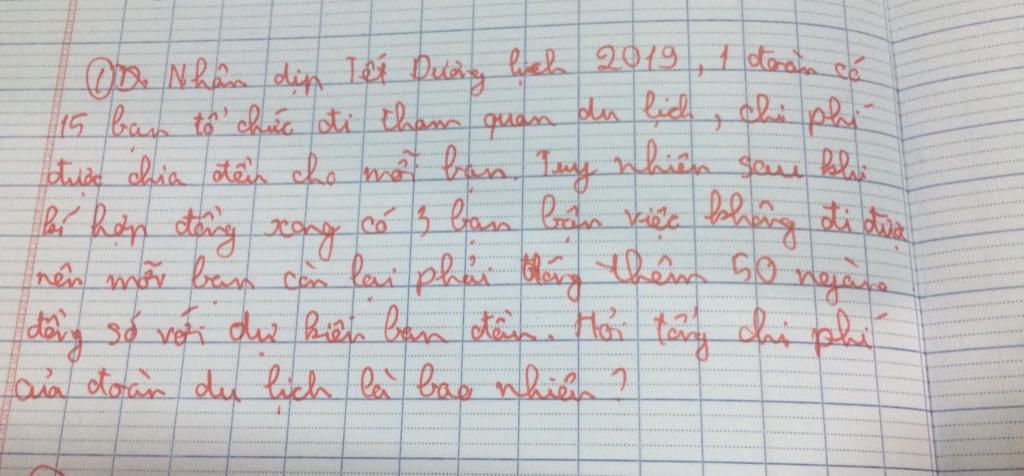 ① Nhân dịp Tết Dương lịch 2019, 1 đoàn có
15 bạn tổ chức đi tham quan du lịch, chi phí
được chia đều cho mỗi bạn. Tuy nhiên sau khi
kí hợp đồng xong có 3 bạn bận việc không đi được
nên mỗi bạn còn lại phải đóng thêm 50 ngàn
đồng số với dự kiến ban đầu. Hỏi tổng chi phí
của đoàn du lịch là bao nhiên?